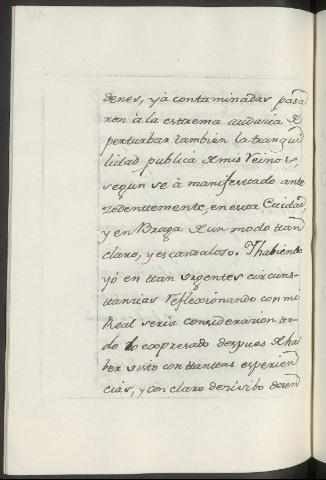 denes, yà contaminadas pasa
ron à la estrema audacia d
perturbar tambien la tranqui
lidad publica d mis Reinos,
segun se à manifestado ante
zedentemente, en esta Cuidad,
y en Braga d un modo ttan
claro, y escandaloso. Thabiendo
yó en ttan urgentes circuns-
ttancias reflexionando con mi
Real seria consideracion tto-
do lo expresado despues d ha
ber visto con ttanttas esperien
cias, y con claro decisibo desen